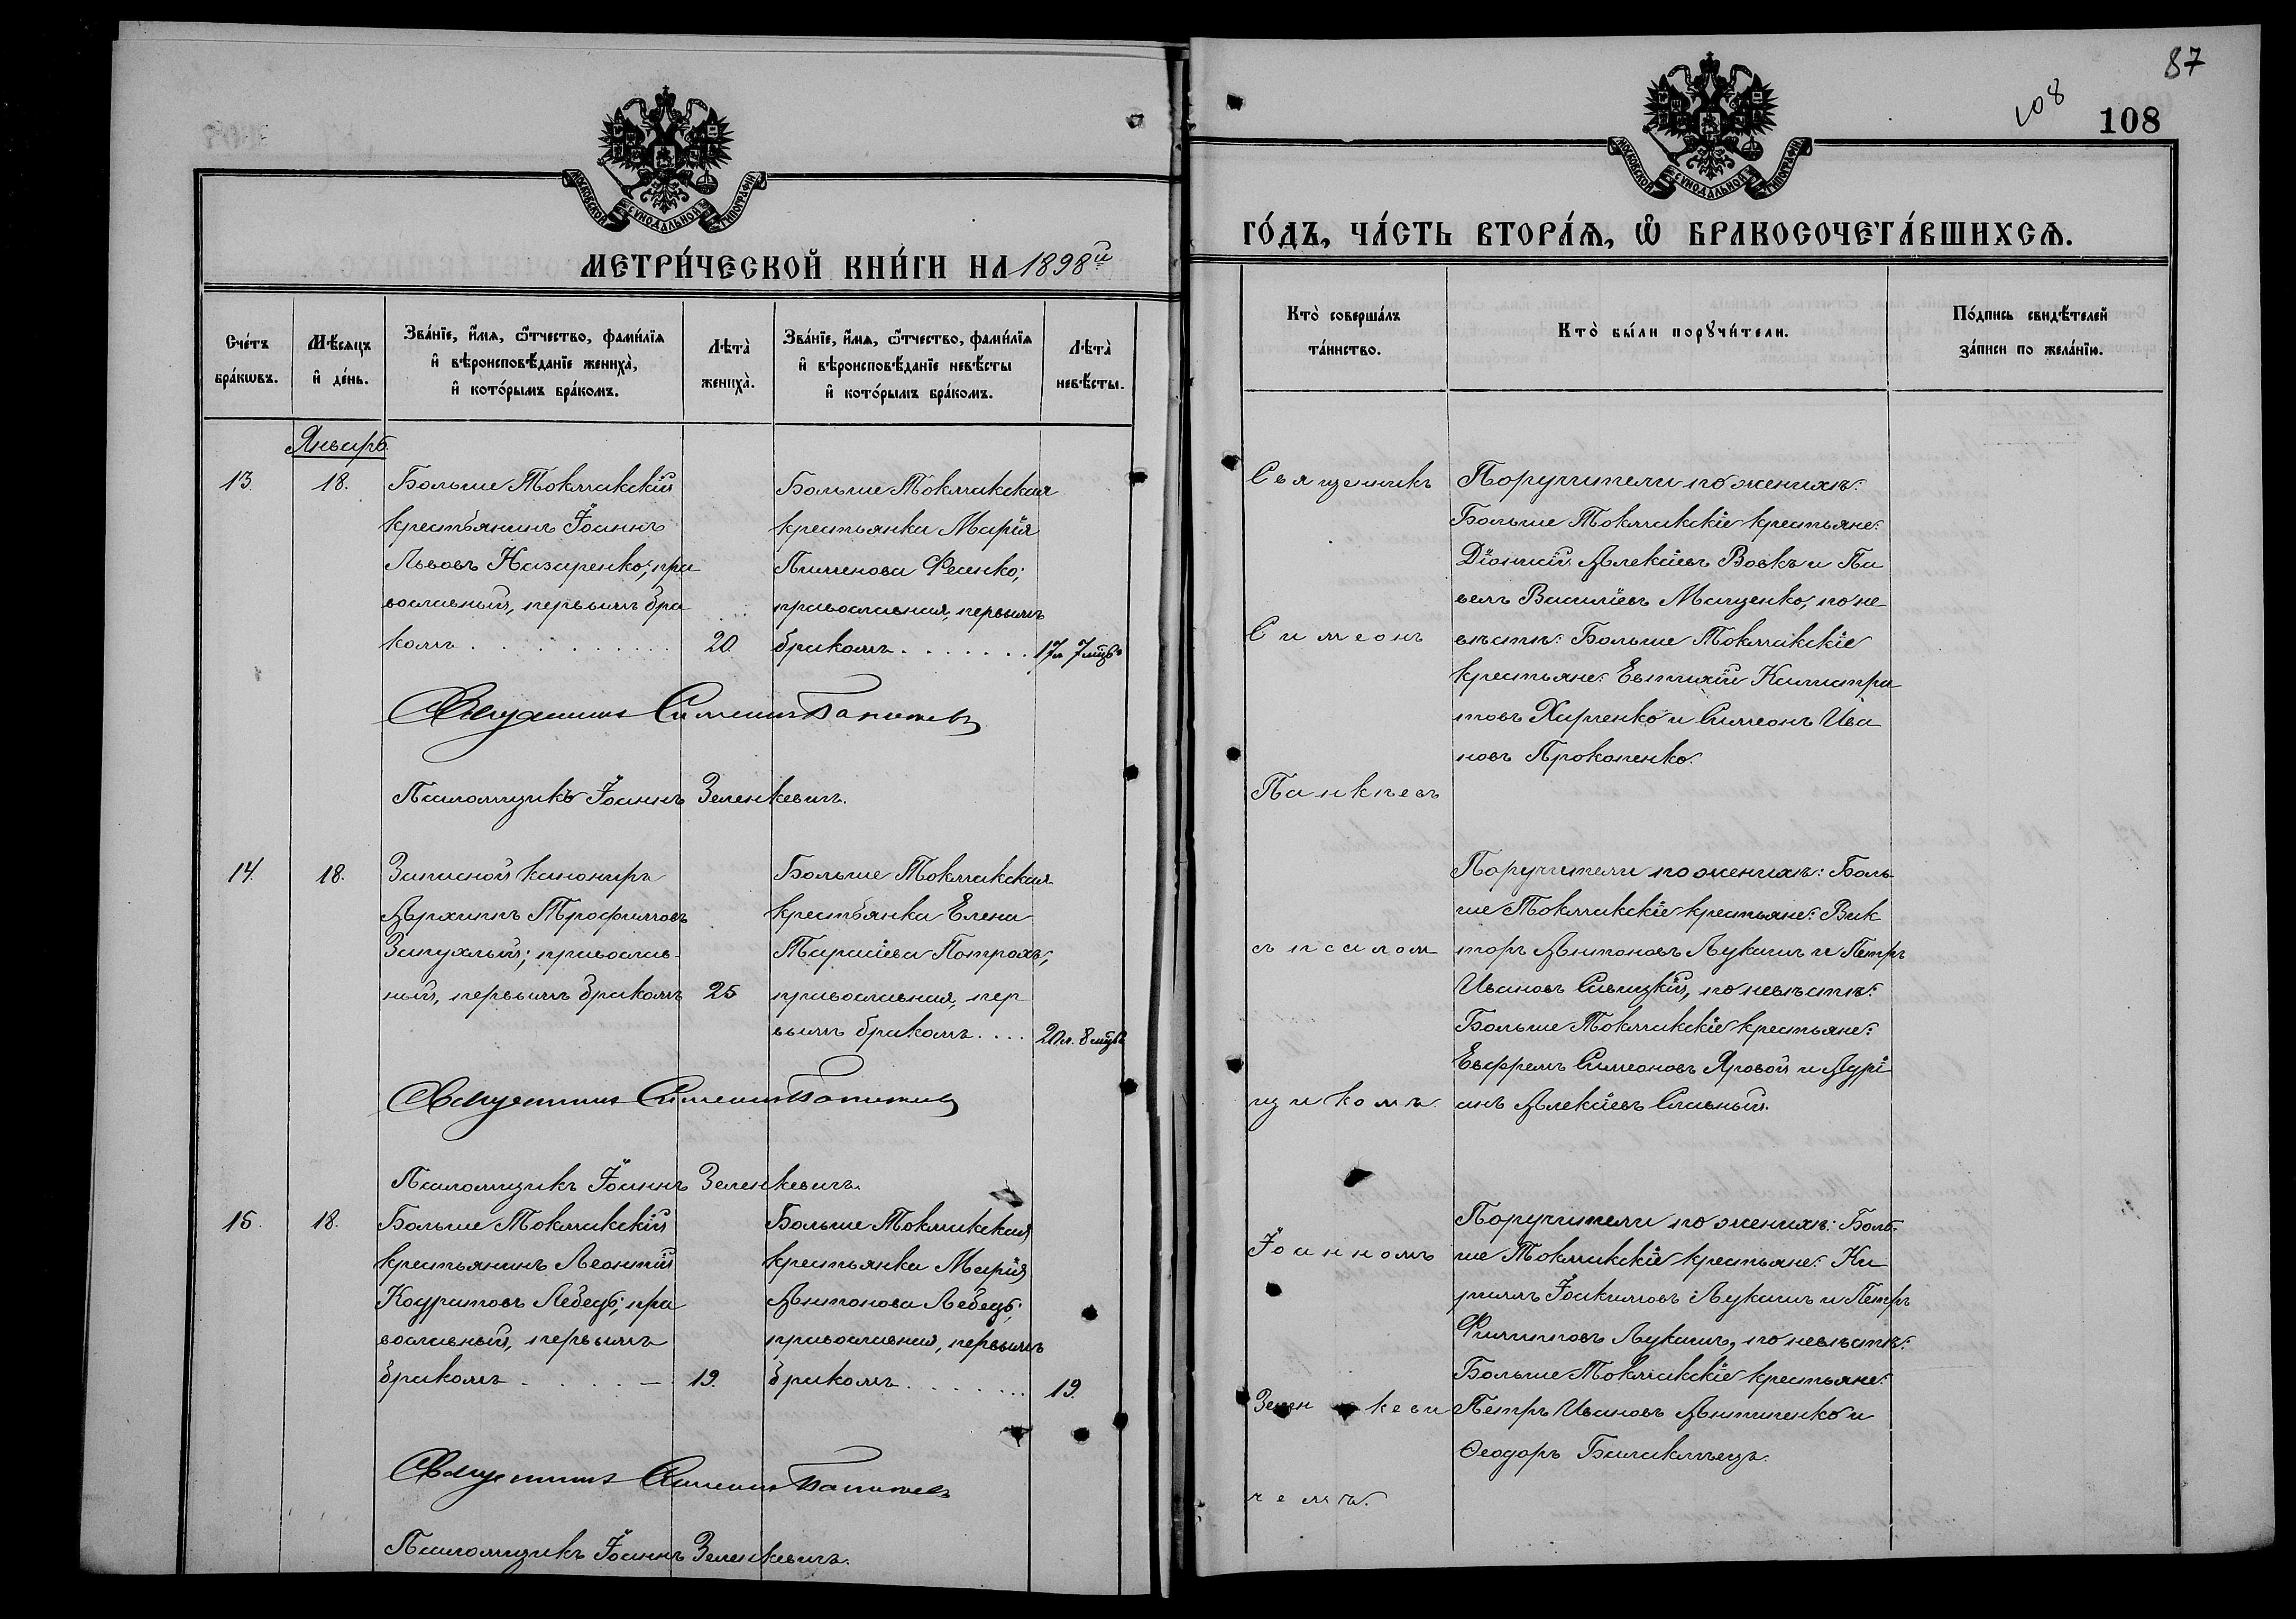 МОСКОВСКОЙ СѴНОДАЛЬНОЙ ТИПОГРАФІИ
МЕТРИ́ЧЕСКОЙ КНИ́ГИ НА 1898й
Сче́тъ бра́кωвъ.
Мѣ́сяцъ и҆ де́нь.
Зва́нїе, и҆́мѧ, ѻ҆́тчество, фами́лїѧ
и҆ вѣроисповѣ́данїе жениха̀,
и҆ кото́рымъ бра́комъ.
Лѣта̀ жениха̀.
Зва́нїе, и҆́мѧ, ѻ҆́тчество, фами́лїѧ
и҆ вѣроисповѣ́данїе невѣ́сты
и҆ кото́рымъ бра́комъ.
Лѣта̀ невѣ́сты.
Январь.
13. 18.
Больше Токмакскій
крестьянинъ Іоаннъ
Львовъ Назаренко; пра
вославный, первымъ бра
комъ . . . . . . . . . 20.
Больше Токмакская
крестьянка Марія
Пименова Фесенко;
православная, первымъ
бракомъ . . . . . . . 17л 7мцвъ
Псаломщикъ Іоаннъ Зеленкевичъ.
14. 18.
Запасной канониръ
Архиппъ Трофимовъ
Запухлый; православ-
ный, первымъ бракомъ 25
Больше Токмакская
крестьянка Елена
Тарасіева Потрохъ;
православная, пер
вымъ бракомъ . . . . 20л. 8мцвъ
Псаломщикъ Іоаннъ Зеленкевичъ.
15. 18.
Больше Токмакскій
крестьянинъ Леонтій
Кодратовъ Лебедь; пра
вославный, первымъ
бракомъ . . . . — 19.
Больше Токмакская
крестьянка Марія
Антонова Лебедь;
православная, первымъ
бракомъ . . . . . . . . 19.
Псаломщикъ Іоаннъ Зеленкевичъ.
87
108
108
МОСКОВСКОЙ СѴНОДАЛЬНОЙ ТИПОГРАФІИ
ГО́ДЪ, ЧА́СТЬ ВТОРА́Ѧ, Ѽ БРАКОСОЧЕТА́ВШИХСѦ.
Кто̀ соверша́лъ
та́инство.
Кто̀ бы́ли порꙋчи́тели.
По́дпись свидѣ́телей
за́писи по жела́нїю.
Священникъ
Симеонъ
Папкневъ
съ псалом
щикомъ
Іоанномъ
Зелен кеви
чемъ.
Поручители по женихѣ:
Больше Токмакскіе крестьяне:
Діонисій Алексіевъ Вовкъ и Па
велъ Василіевъ Маценко, по не
вѣстѣ: Больше Токмакскіе
крестьяне: Евтихій Калистра
товъ Харченко и Симеонъ Ива
новъ Прокопенко.
Поручители по женихѣ: Боль
ше Токмакскіе крестьяне: Вик
торъ Антоновъ Лукашъ и Петръ
Ивановъ Савицкій, по невѣстѣ:
Больше Токмакскіе крестьяне:
Ефремъ Симеоновъ Яровой и Адрі
анъ Алексіевъ Славный.
Поручители по женихѣ: Боль-
ше Токмакскіе крестьяне: Ки
риллъ Іоакимовъ Лукашъ и Петръ
Филипповъ Лукашъ, по невѣстѣ:
Больше Токмакскіе крестьяне:
Петръ Ивановъ Антипенко и
Ѳеодоръ Балаклѣецъ.